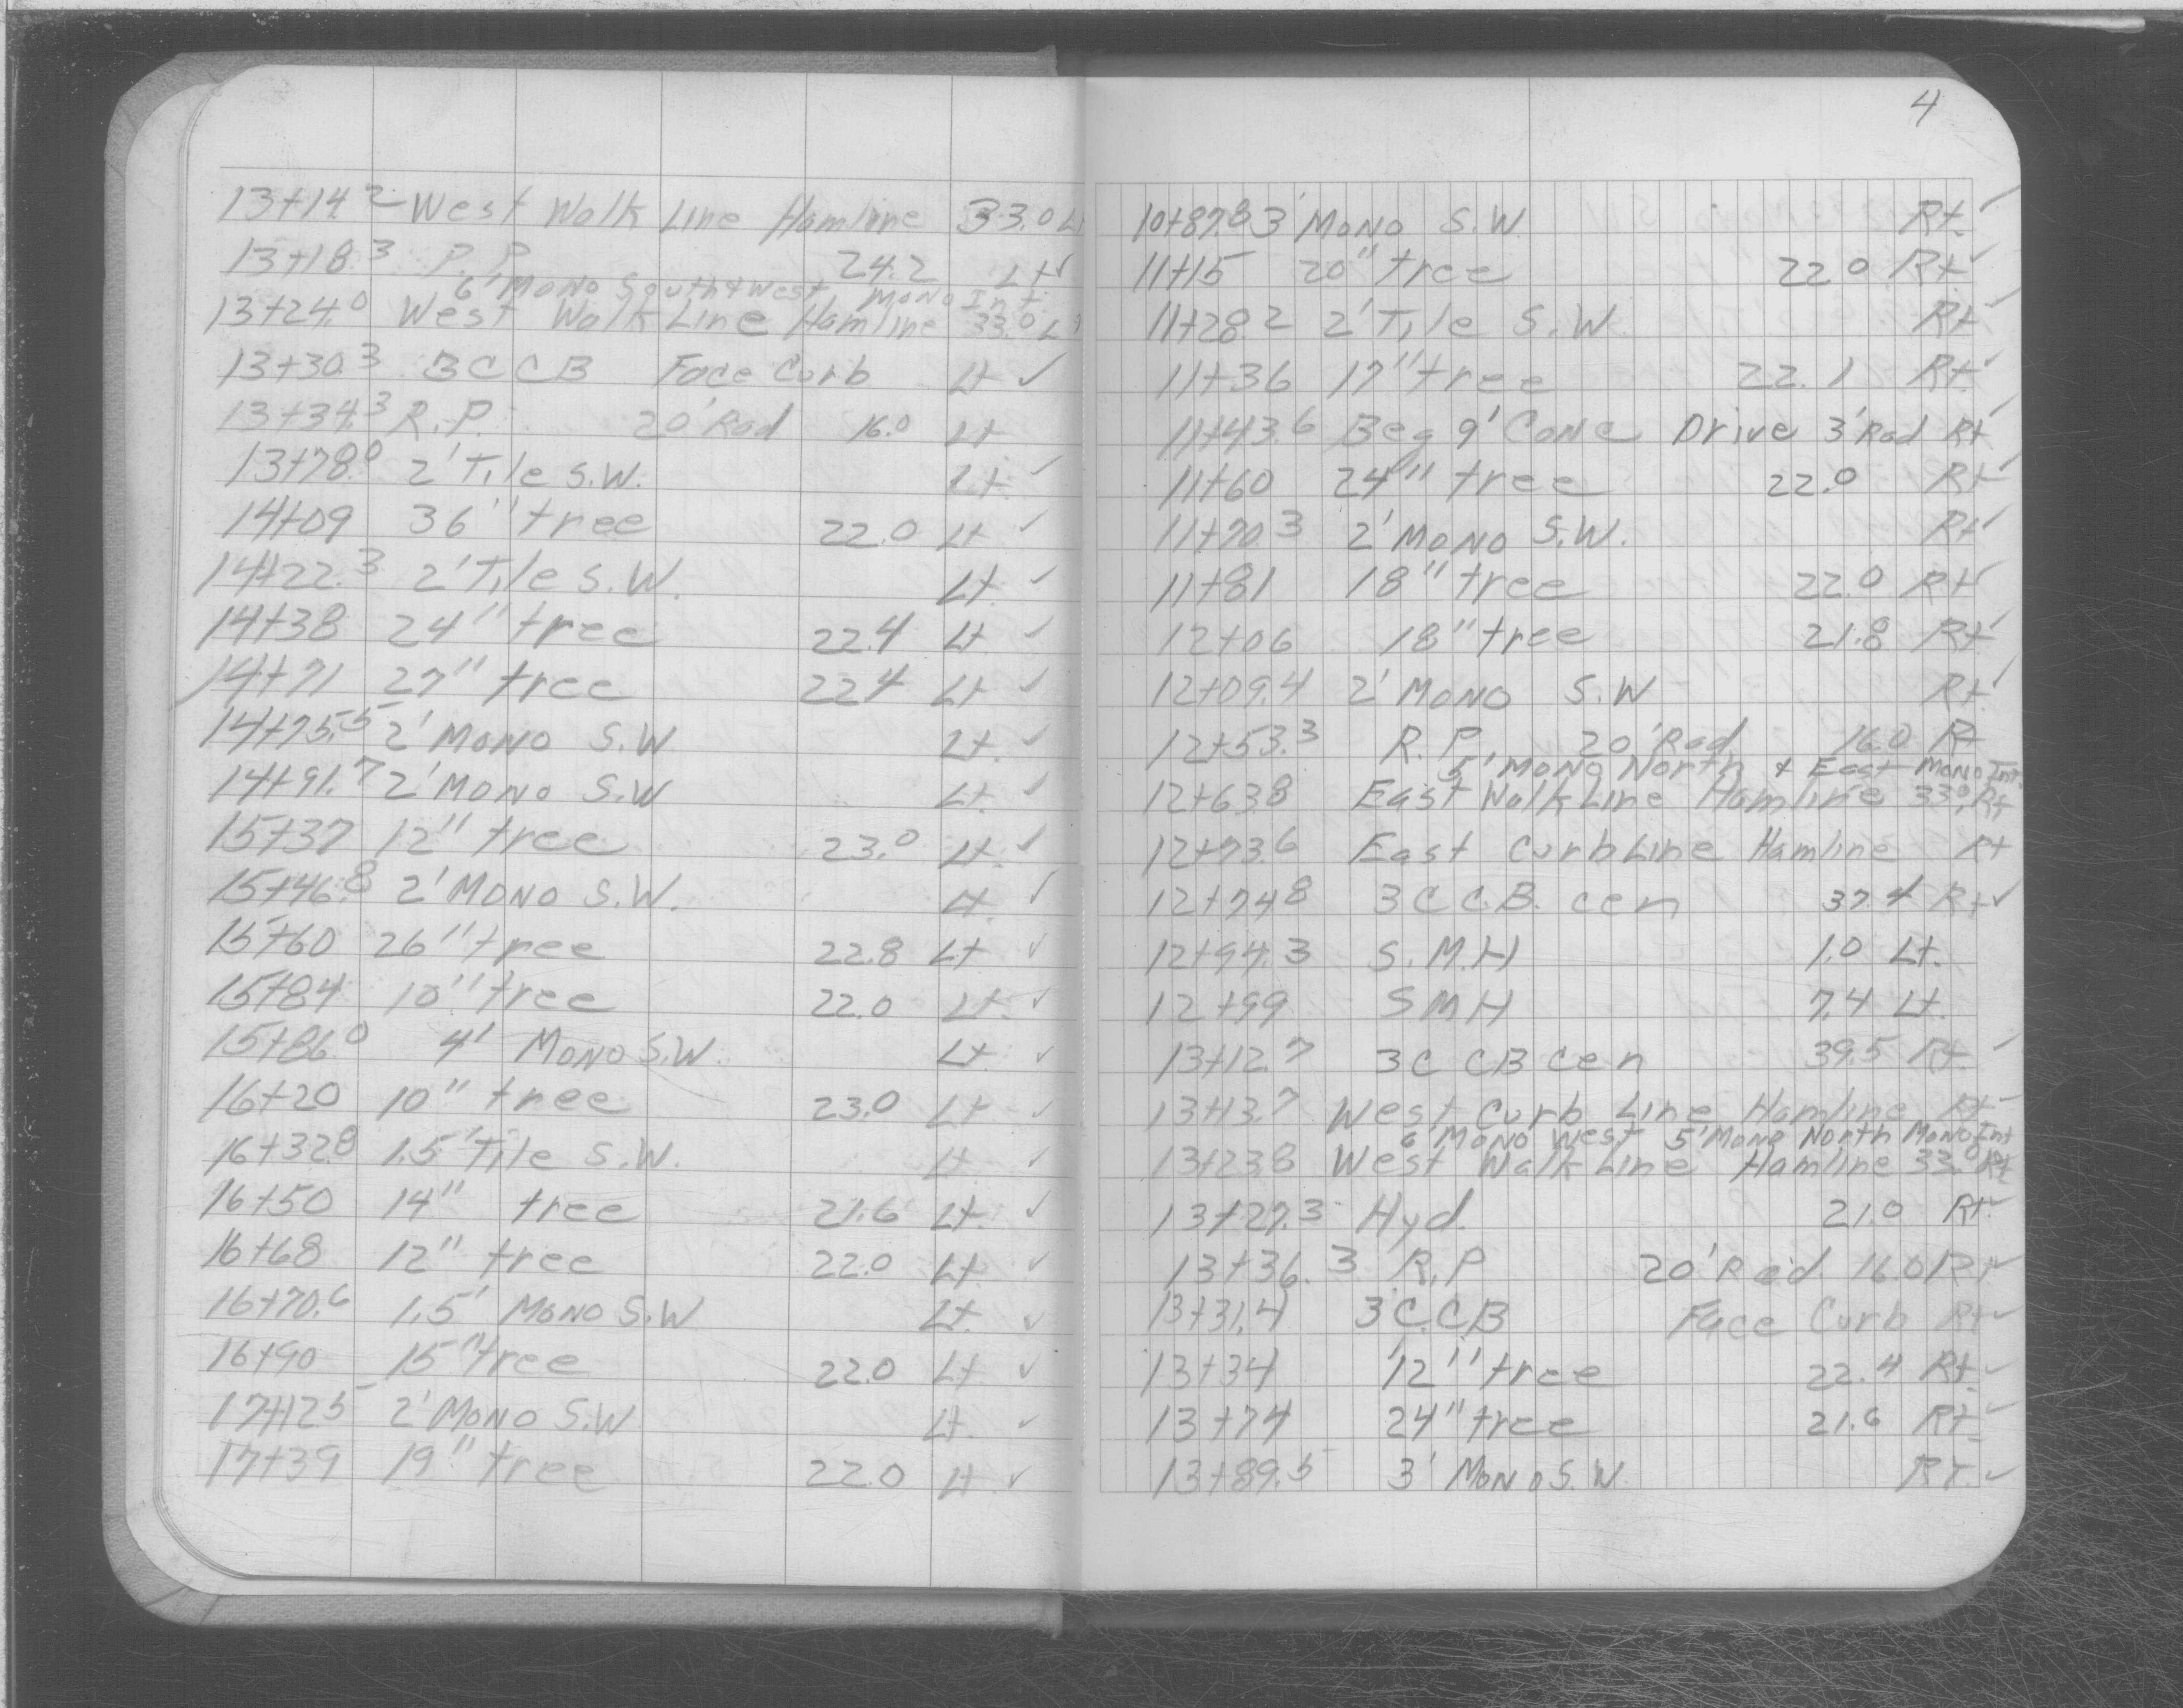 13+14.2 West Walk Line Hamline 33.0 Lt
13+18.3 P.P. 24.2 Lt ✓
6' Mono South & West Mono Int.
13+24.0 West Walk Line Hamline 33.0 Lt
13+30.3 3CCB Face Curb Lt ✓
13+34.3 R.P. 20' Rad 16.0 Lt
13+78.0 2' Tile S.W. Lt. ✓
14+09 36" tree 22.0 Lt ✓
14+22.3 2' Tile S.W. Lt. ✓
14+38 24" tree 22.4 Lt. ✓
14+71 27" tree 22.4 Lt ✓
14+75.5 2' Mono S.W. Lt. ✓
14+91.7 2' Mono S.W Lt. ✓
15+37 12" tree 23.0 Lt. ✓
15+46.8 2' Mono S.W. Lt. ✓
15+60 26" tree 22.8 Lt. ✓
15+84 10" tree 22.0 Lt. ✓
15+86.0 4' Mono S.W. Lt. ✓
16+20 10" tree 23.0 Lt ✓
16+32.8 1.5' Tile S.W. Lt ✓
16+50 14" tree 21.6 Lt. ✓
16+68 12" tree 22.0 Lt. ✓
16+70.6 1.5' Mono S.W Lt. ✓
16+90 15" tree 22.0 Lt ✓
17+12.5 2' Mono S.W Lt. ✓
17+39 19" tree 22.0 Lt ✓
4
10+87.8 3' Mono S.W. Rt. ✓
11+15 20" tree 22.0 Rt ✓
11+28.2 2' Tile S.W. Rt ✓
11+36 17" tree 22.1 Rt. ✓
11+43.6 Beg 9' Conc Drive 3' Rad Rt ✓
11+60 24" tree 22.0 Rt ✓
11+70.3 2' Mono S.W. Rt ✓
11+81 18" tree 22.0 Rt ✓
12+06 18" tree 21.8 Rt ✓
12+09.4 2' Mono S.W Rt. ✓
12+53.3 R.P. 20' Rad 16.0 Rt
5' Mono North & East Mono Int.
12+63.8 East Walk Line Hamline 33.0 Rt
12+73.6 East Curb Line Hamline Rt
12+74.8 3CC.B. cen 37.4 Rt ✓
12+94.3 S.M.H 1.0 Lt.
12+99 SMH 7.4 Lt.
13+12.7 3C CB cen 39.5 Rt. ✓
13+13.7 West Curb Line Hamline Rt
6' Mono West 5' Mono North Mono Int
13+23.8 West Walk Line Hamline 33.0 Rt
13+27.3 Hyd. 21.0 Rt. ✓
13+36.3 R.P 20' Rad. 16.0 Rt ✓
13+31.4 3C.C.B Face Curb Rt ✓
13+34 12" tree 22.4 Rt. ✓
13+74 24" tree 21.6 Rt. ✓
13+89.5 3' Mono S.W. RT. ✓